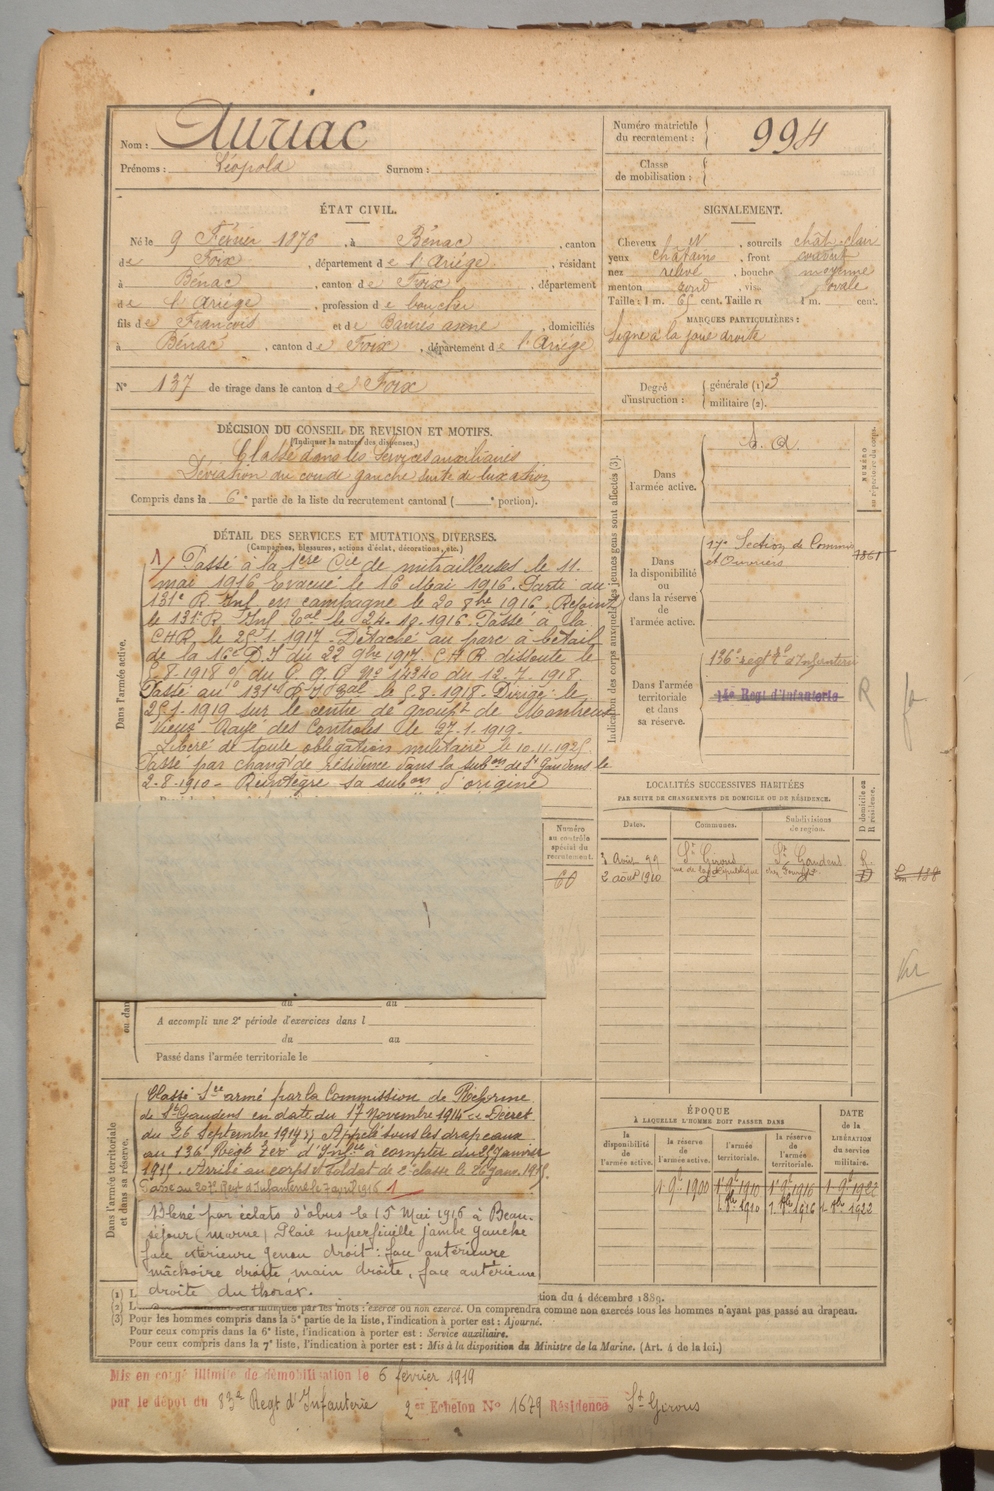 Nom : Auriac
Prénoms : Léopold Surnom :
Numéro matricule du recrutement : 994
Classe de mobilisation :
ÉTAT CIVIL.
Né le 9 Février 1876, à Bénac, canton
de Foix, département de l'Ariège, résidant
à Bénac, canton de Foix, département
de l'Ariège, profession de boucher
fils de François et de Barrès anne, domiciliés
à Bénac, canton de Foix, département de l'Ariège
N° 137 de tirage dans le canton de Foix
SIGNALEMENT.
Cheveux N, sourcils chât-clair
yeux châtains, front couvert
nez relevé, bouche moyenne
menton rond, vis ovale
Taille : 1 m. 65 cent. Taille r 1 m. cent.
MARQUES PARTICULIÈRES :
Signe à la joue droite
Degré d'instruction : générale (1) 3
militaire (2).
DÉCISION DU CONSEIL DE REVISION ET MOTIFS.
(Indiquer la nature des dispenses.)
Classé dans les Services auxiliaires
Déviation du coude gauche suite de luxation
Compris dans la 6e partie de la liste du recrutement cantonal ( portion).
DÉTAIL DES SERVICES ET MUTATIONS DIVERSES.
(Campagnes, blessures, actions d'éclat, décorations, etc.)
1/ Passé à la 1ere Cie de mitrailleuses le 11.
mai 1916 Evacué le 16 Mai 1916. Parti au
131e R. Inf en campagne le 20 8bre 1916. Rejoint
le 131e R. Inf le 24.10.1916. Passé à la
CHR. le 25.1.1917. Détaché au parc à bétail
de la 16e D.I du 22 9bre 1917. C.H.R dissoute le
8.1918 du G. Q. G. No 14340 du 12.7.1918
Passé au 131e R.I le 5.8.1918. Dirigé le
25.1.1919 sur le centre de groupt de Montreux
Vieux. Rayé des Controles le 27.1.1919.
Libéré de toute obligation militaire le 10.11.1925.
Passé par changt de résidence dans la subon de St Gaudens le
2.8.1910 - Réintègre sa subon d'origine
Dans l'armée active.
ou dan
du au
A accompli une 2e période d'exercices dans l
du au
Passé dans l'armée territoriale le
Numéro au contrôle spécial du recrutement.
60
Indication des corps auxquels les jeunes gens sont affectés (3).
Dans l'armée active.
S. A.
NUMÉRO au répertoire du corps.
Dans la disponibilité ou dans la réserve de l'armée active.
17e Section de Commis
et Ouvriers
1861
Dans l'armée territoriale et dans sa réserve.
136e regt d'Infanterie
14e Regt d'Infanterie
R
LOCALITÉS SUCCESSIVES HABITÉES
PAR SUITE DE CHANGEMENTS DE DOMICILE OU DE RÉSIDENCE.
Dates. Communes. Subdivisions de région. D domicile ou R résidence.
3 Avril 99 St Girons St Gaudens R.
rue de la République
2 août 1910 d° d° D
Dans l'armée territoriale et dans sa réserve.
Classé Sce armé par la Commission de Réforme
de St Gaudens en date du 17 Novembre 1914 « Décret
du 26 Septembre 1914 » Appelé sous les drapeaux
au 136e Regt Terr d'Infrie à compter du Janvier
1915. Arrivé au corps et Soldat de 2e classe le Janv. 1915.
Passé au 207e Regt d'Infanterie le 7 avril 1916 1
Blessé par éclats d'obus le 15 Mai 1916 à Beau-
séjour (marne) Plaie superficielle jambe gauche
face extérieure genou droit : face antérieure
mâchoire droite, main droite, face antérieure
droite du thorax.
ÉPOQUE
À LAQUELLE L'HOMME DOIT PASSER DANS
la disponibilité de l'armée active. la réserve de l'armée active. l'armée territoriale. la réserve de l'armée territoriale.
DATE de la LIBÉRATION du service militaire.
1. 9bre 1900 1. 9bre 1910 1. 9bre 1916 1. 9bre 1922
1. 8bre 1910 1. 8bre 1916 1. 8bre 1922
(1) L tion du 4 décembre 1889.
(2) L indiquée par les mots : exercé ou non exercé. On comprendra comme non exercés tous les hommes n'ayant pas passé au drapeau.
(3) Pour les hommes compris dans la 5e partie de la liste, l'indication à porter est : Ajourné.
Pour ceux compris dans la 6e liste, l'indication à porter est : Service auxiliaire.
Pour ceux compris dans la 7e liste, l'indication à porter est : Mis à la disposition du Ministre de la Marine. (Art. 4 de la loi.)
Mis en congé illimité de démobilisation le 6 février 1919
par le dépôt du 83e Regt d'Infanterie 2er Echelon No 1679 Résidence St Girons